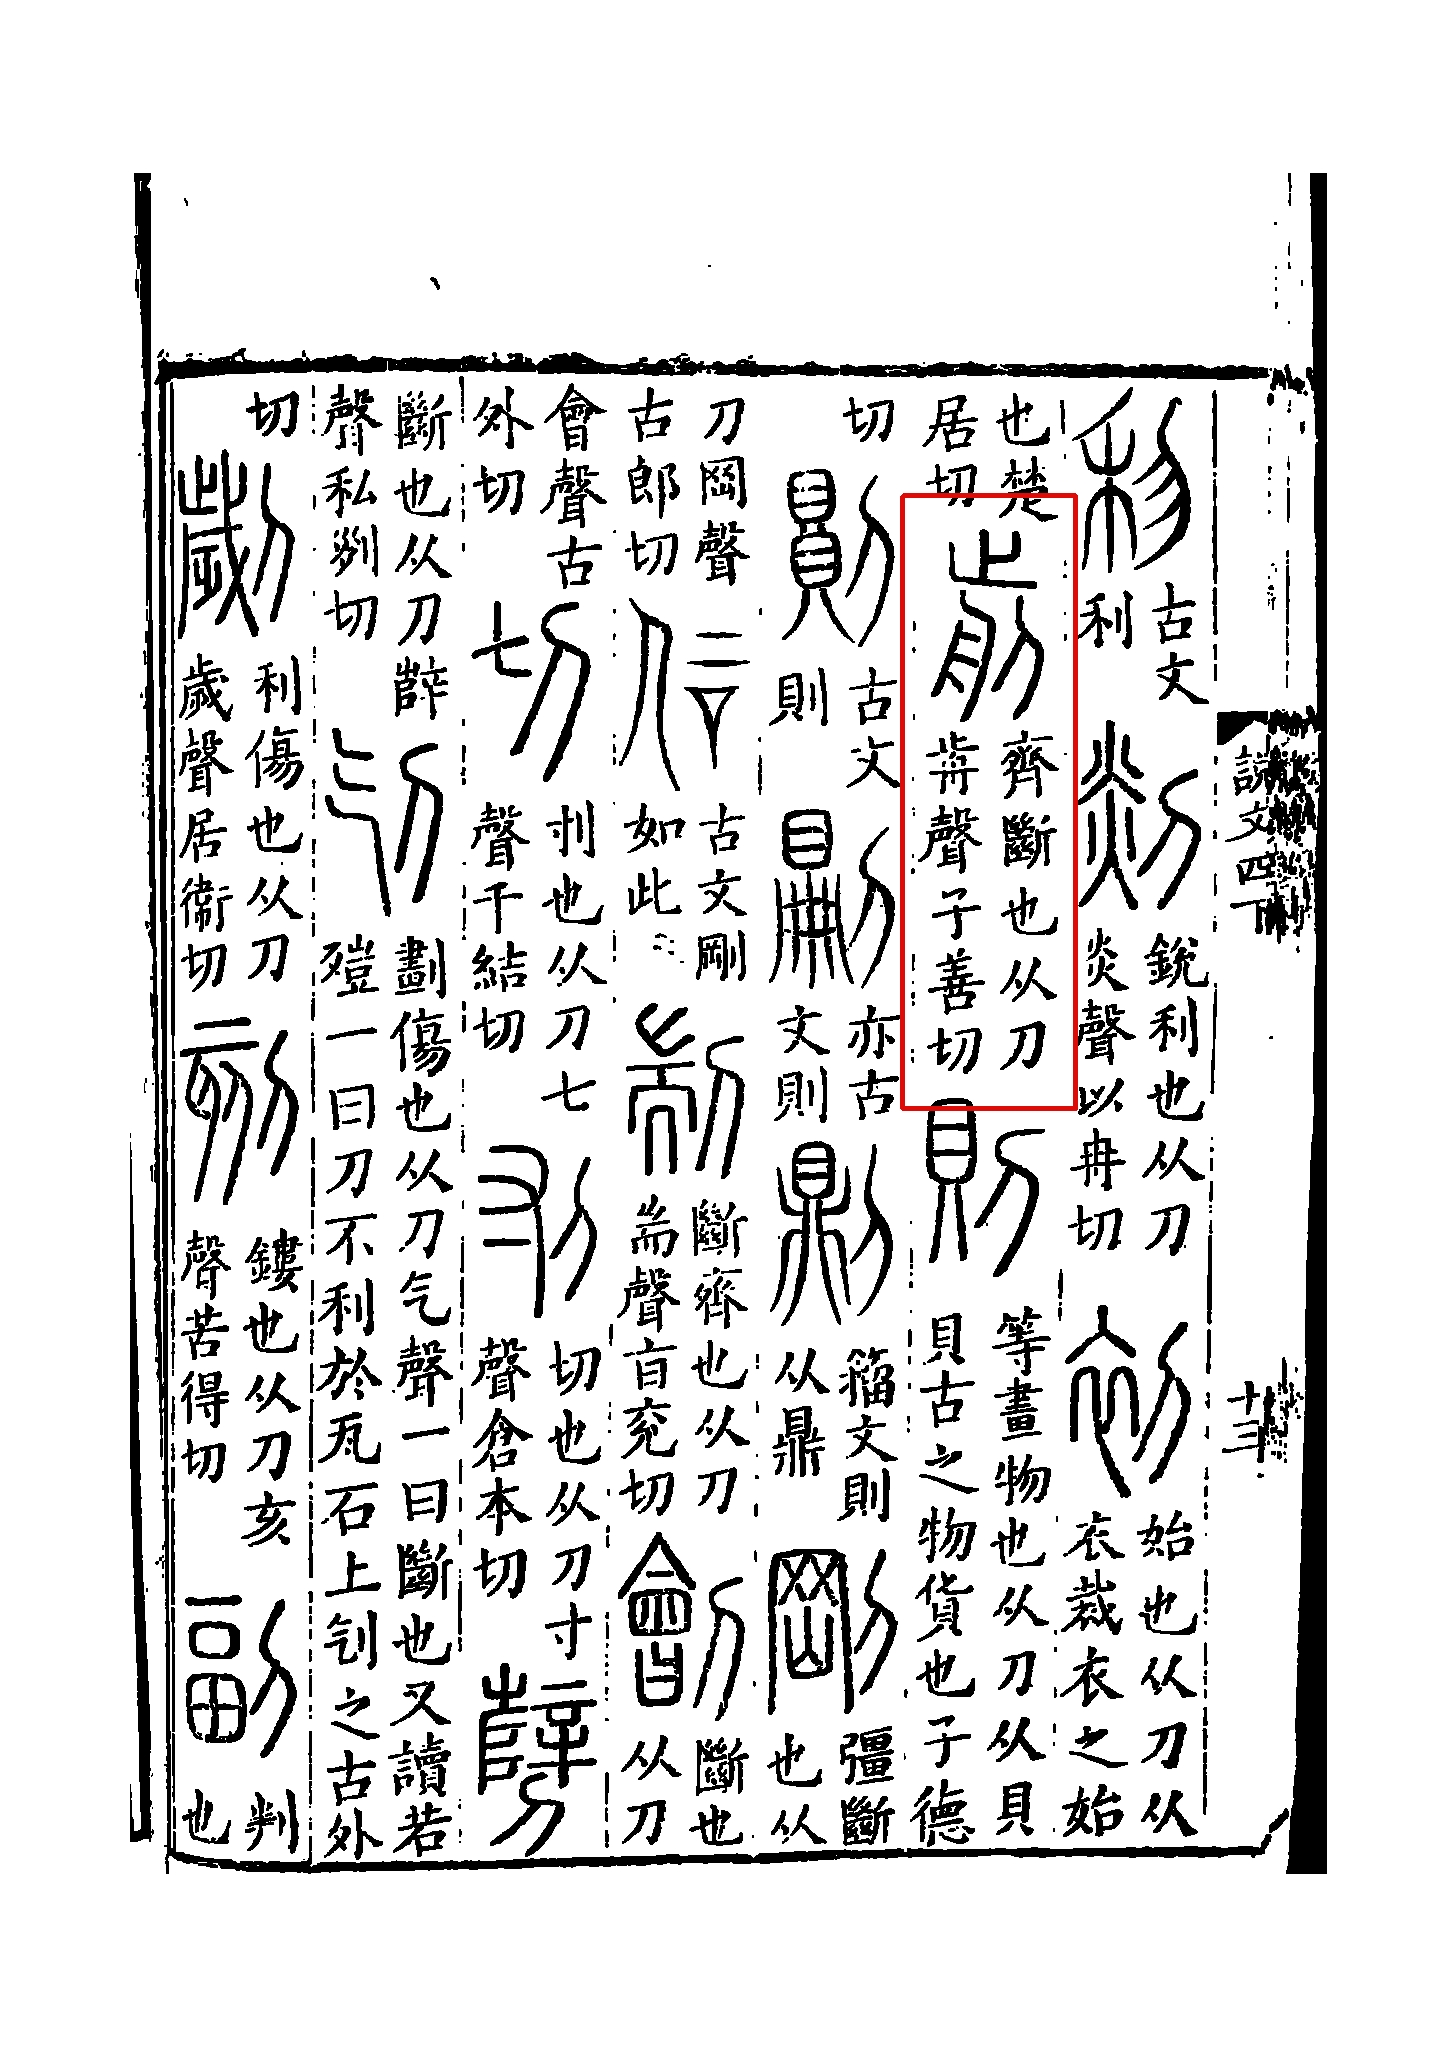 說文四下
十三
𥝤 古文利 剡 銳利也从刀炎聲以冉切 初 始也从刀从衣裁衣之始
也楚居切 剪 齊斷也从刀歬聲子善切 則 等畫物也从刀从貝貝古之物貨也子德
切 𠟭 古文則 𠟻 亦古文則 𠞋 籀文則从鼎 剛 彊斷也从
刀岡聲古郎切 𠇙 古文剛如此 剬 斷齊也从刀耑聲旨兖切 劊 斷也从刀
會聲古外切 切 刌也从刀七聲千結切 刌 切也从刀寸聲倉本切 𠠫
斷也从刀辥聲私列切 刉 劃傷也从刀气聲一曰斷也又讀若殪一曰刀不利於瓦石上刉之古外
切 劌 利傷也从刀歲聲居衞切 刻 鏤也从刀亥聲苦得切 副 判也